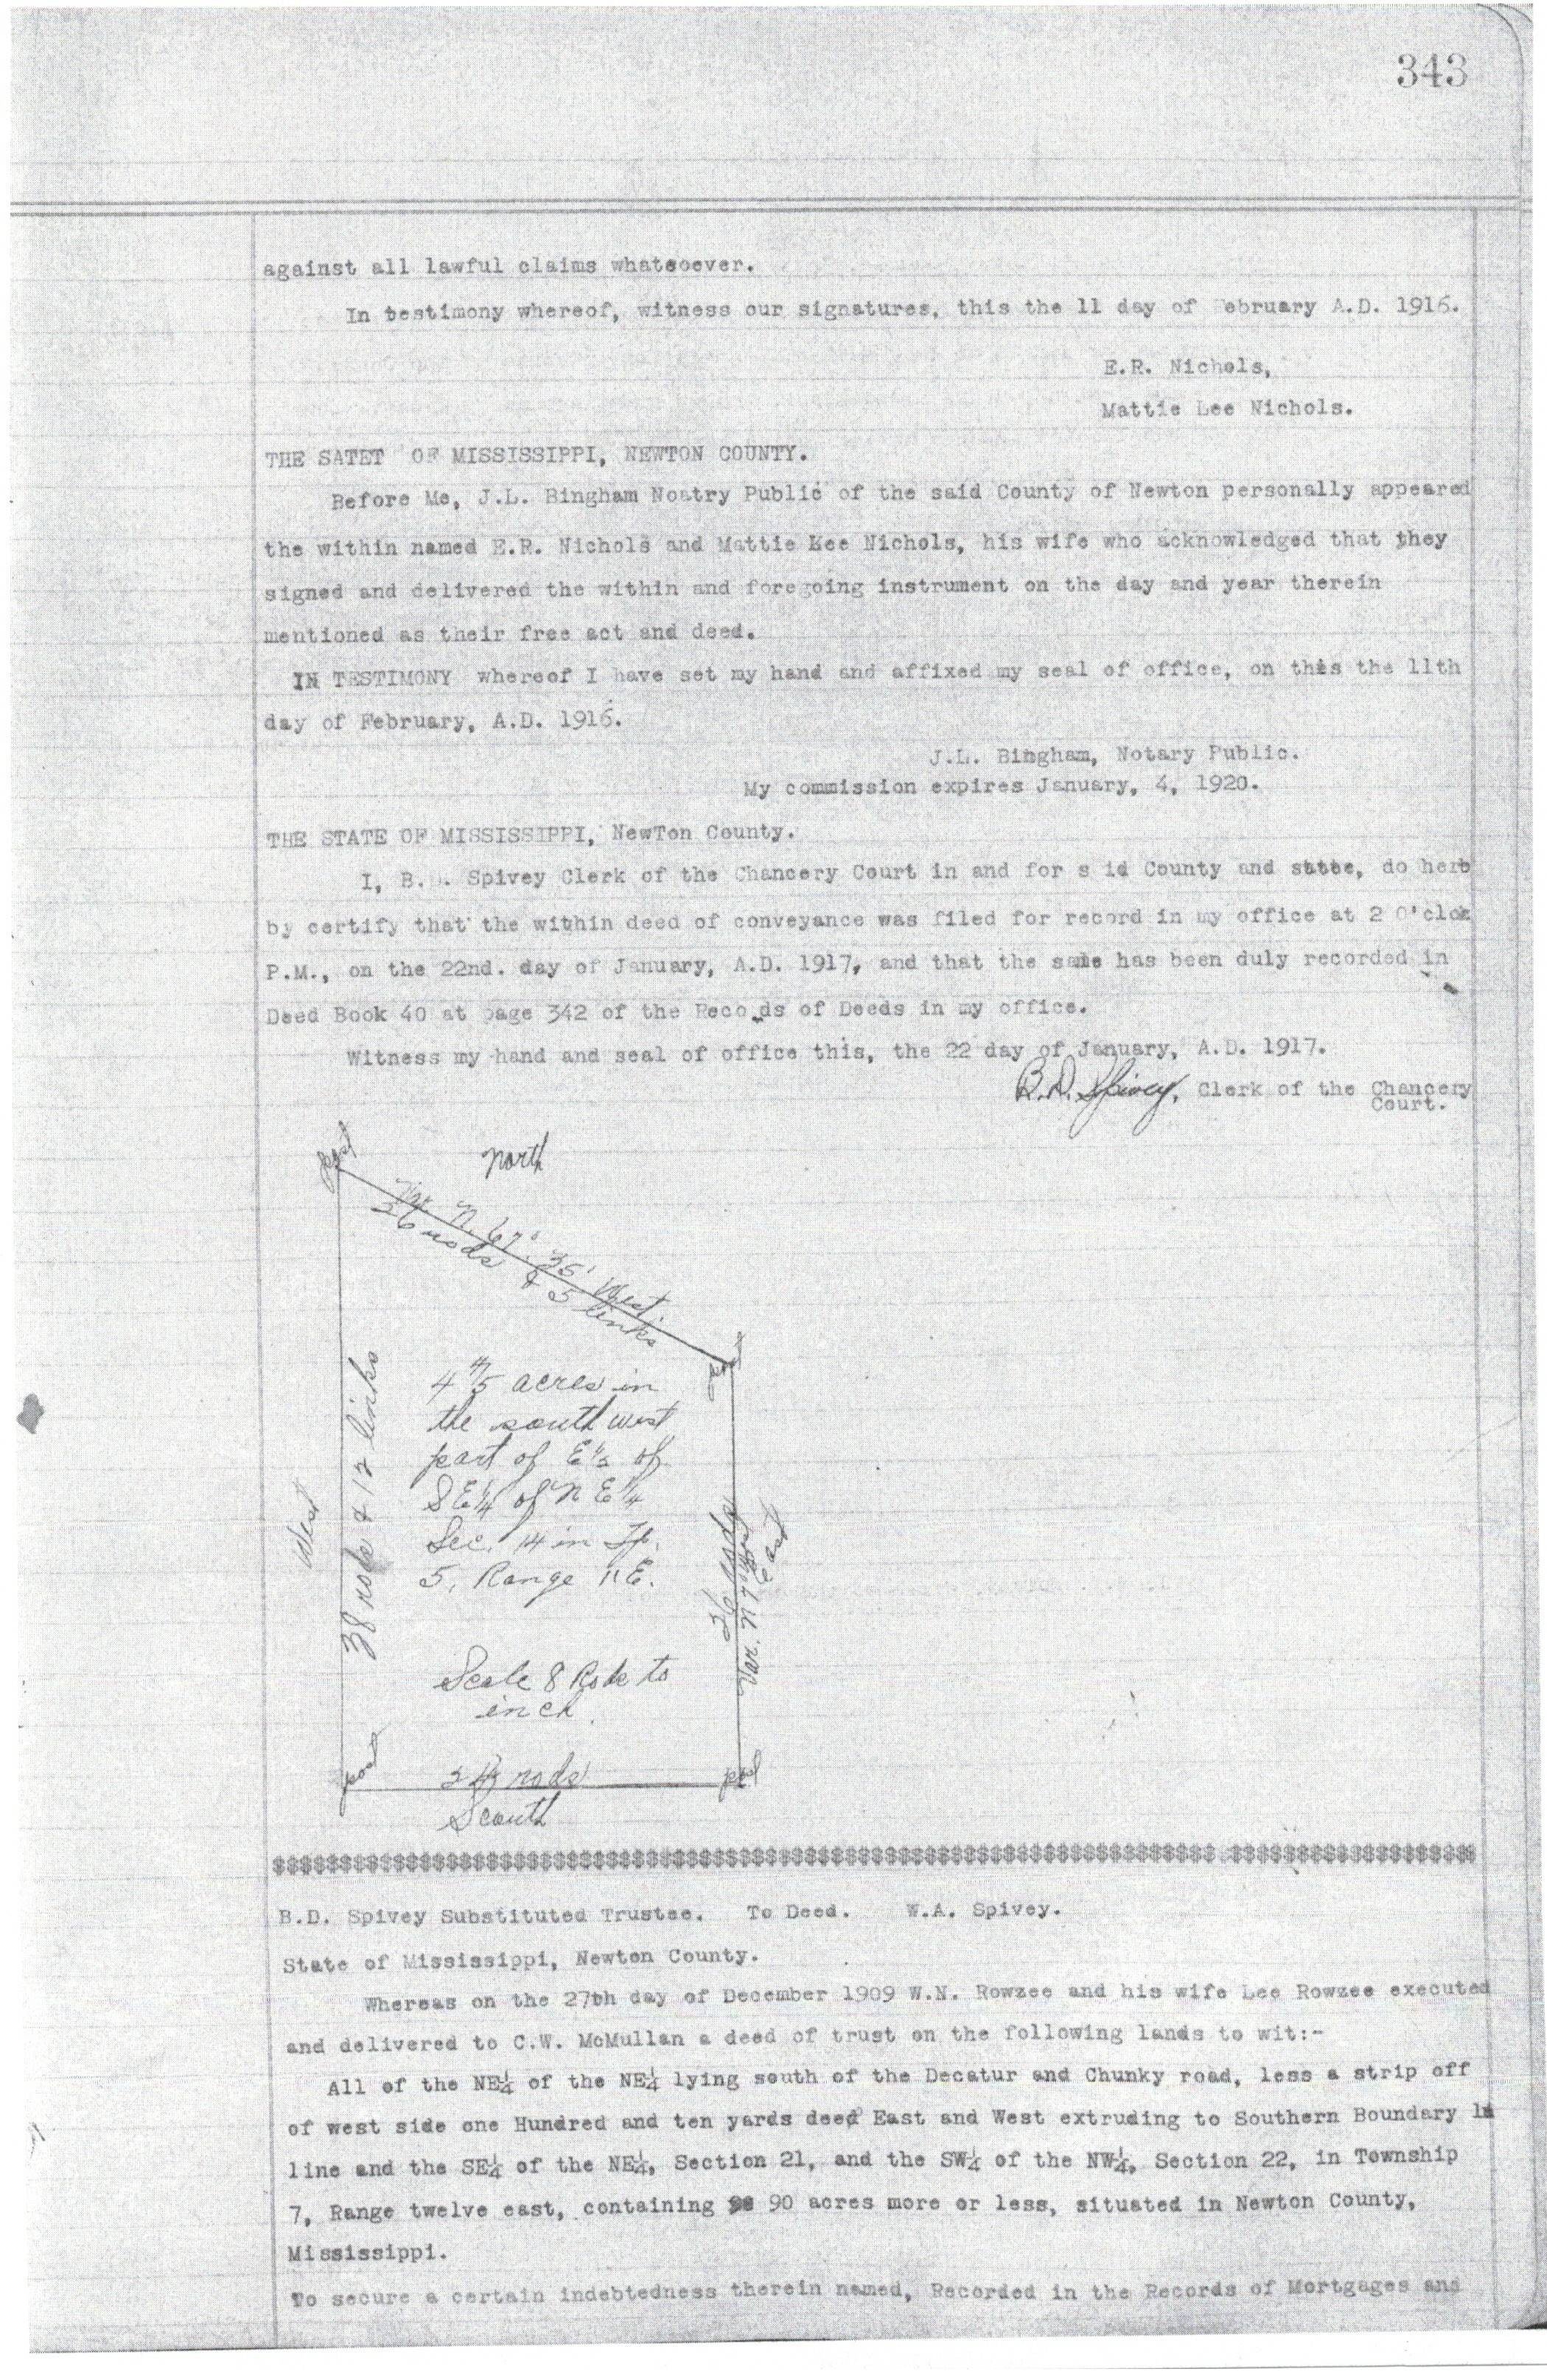 343
against all lawful claims whatsoever.
In testimony whereof, witness our signatures, this the 11 day of ebruary A.D. 1916.
E.R. Nichols,
Mattie Lee Nichols.
THE SATET OF MISSISSIPPI, NEWTON COUNTY.
Before Me, J.L. Bingham Noatry Public of the said County of Newton personally appeared
the within named E.R. Nichols and Mattie Lee Nichols, his wife who acknowledged that they
signed and delivered the within and foregoing instrument on the day and year therein
mentioned as their free act and deed.
IN TESTIMONY whereof I have set my hand and affixed my seal of office, on this the 11th
day of February, A.D. 1916.
J.L. Bingham, Notary Public.
My commission expires January, 4, 1920.
THE STATE OF MISSISSIPPI, NewTon County.
I, B. . Spivey Clerk of the Chancery Court in and for s id County and state, do here
by certify that the within deed of conveyance was filed for record in my office at 2 O'clok
P.M., on the 22nd. day of January, A.D. 1917, and that the same has been duly recorded in
Deed Book 40 at page 342 of the Reco ds of Deeds in my office.
Witness my hand and seal of office this, the 22 day of January, A.D. 1917.
B.D. Spivey, Clerk of the Chancery
Court.
post
North
N. 67° 35' West.
26 rods & 5 links
4 4/5 acres in
the south west
part of E½ of
SE¼ of NE¼
Sec. 14 in Tp.
5, Range 11E.
West
38 rods & 12 links
26 rods
Var. N 7° West
East
Scale 8 Rods to
inch
post
rods
post
South
B.D. Spivey Substituted Trustee. To Deed. W.A. Spivey.
State of Mississippi, Newton County.
Whereas on the 27th day of December 1909 W.N. Rowzee and his wife Lee Rowzee executed
and delivered to C.W. McMullan a deed of trust on the following lands to wit:-
All of the NE¼ of the NE¼ lying south of the Decatur and Chunky road, less a strip off
of west side one Hundred and ten yards deed East and West extruding to Southern Boundary
line and the SE¼ of the NE¼, Section 21, and the SW¼ of the NW¼, Section 22, in Township
7, Range twelve east, containing 90 acres more or less, situated in Newton County,
Mississippi.
To secure a certain indebtedness therein named, Recorded in the Records of Mortgages and